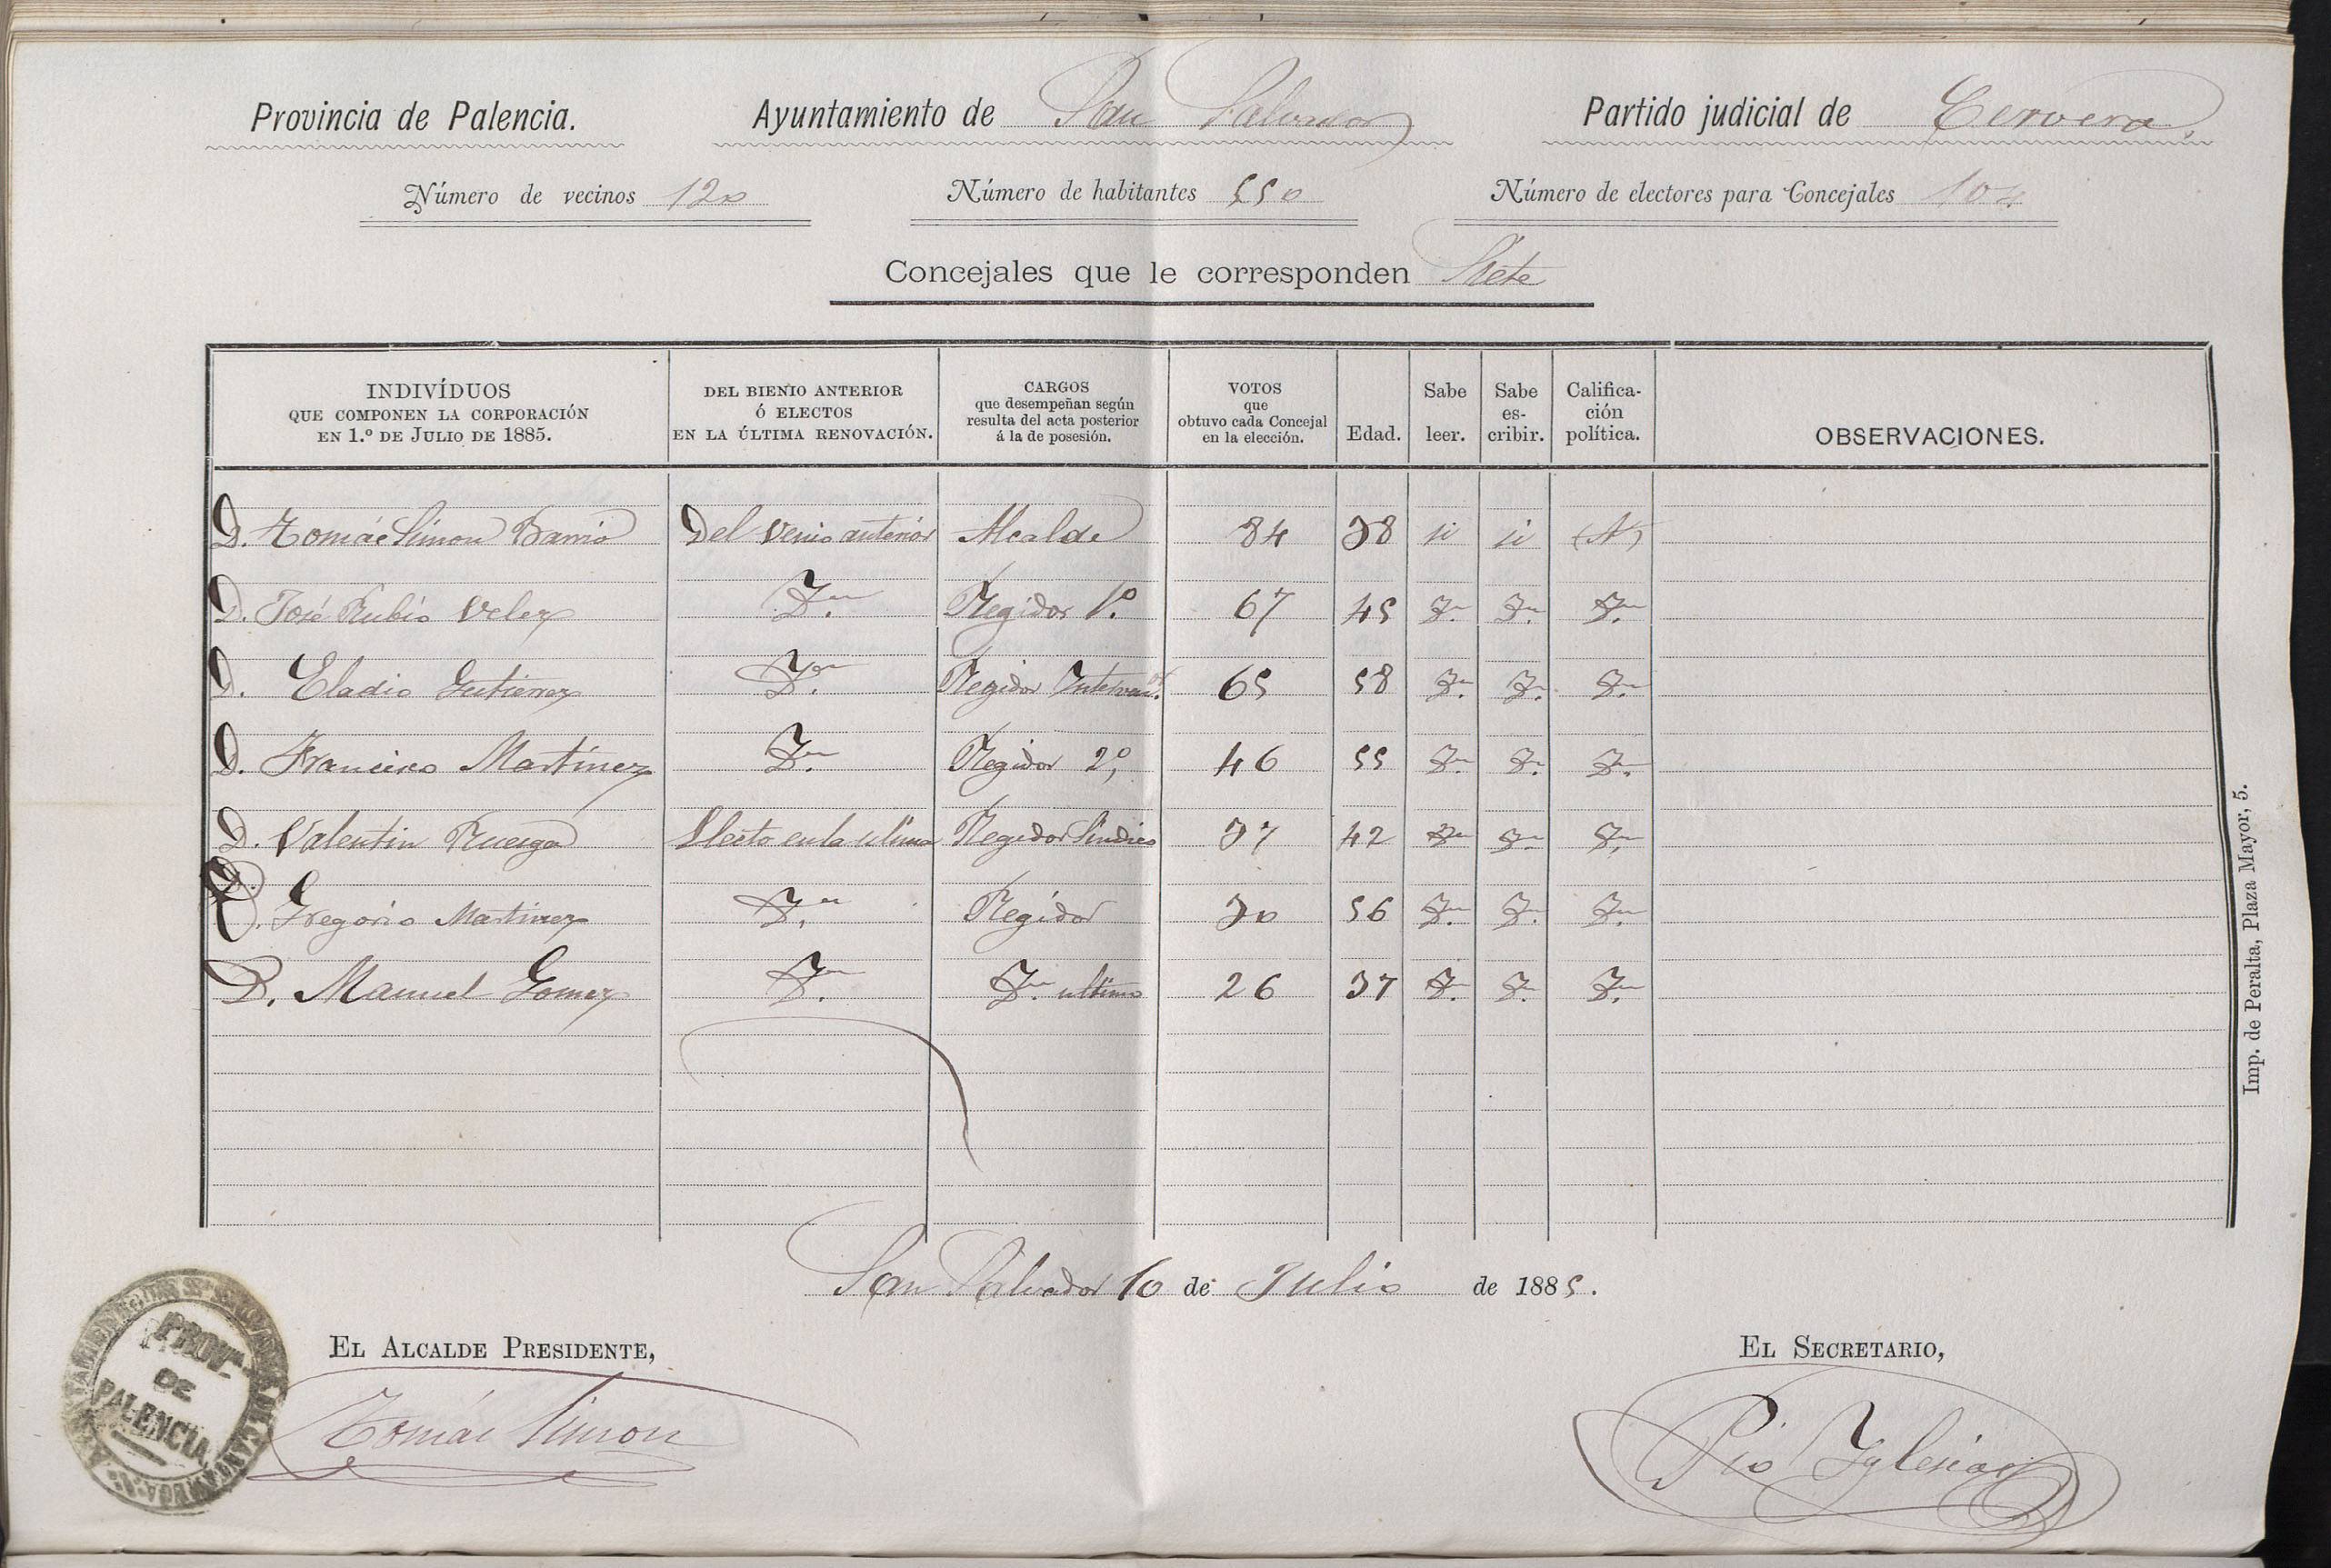 Provincia de Palencia. Ayuntamiento de San Salvador Partido judicial de Cervera.
Número de vecinos 120 Número de habitantes 550 Número de electores para Concejales 104
Concejales que le corresponden Siete
INDIVÍDUOS QUE COMPONEN LA CORPORACIÓN EN 1.º DE JULIO DE 1885. DEL BIENIO ANTERIOR Ó ELECTOS EN LA ÚLTIMA RENOVACIÓN. CARGOS que desempeñan según resulta del acta posterior á la de posesión. VOTOS que obtuvo cada Concejal en la elección. Edad. Sabe leer. Sabe es-cribir. Califica-ción política. OBSERVACIONES.
D. Tomás Simon Barrio Del venio anterior Alcalde 84 38 si si (A)
D. José Rubio Velez Ydm. Regidor 1.º 67 45 Ydm. Ydm. Ydm.
D. Eladio Gutierrez Ydm. Regidor Intervent.or 65 58 Ydm. Ydm. Ydm.
D. Francisco Martinez Ydm. Regidor 2.º 46 55 Ydm. Ydm. Ydm.
D. Valentin Ruesga Electo en la ulima Regidor Sindico 37 42 Ydm. Ydm. Ydm.
D. Gregorio Martinez Ydm. Regidor 30 56 Ydm. Ydm. Ydm.
D. Manuel Gomez Ydm. Ydm. ultimo 26 37 Ydm. Ydm. Ydm.
San Salvador 10 de Julio de 1885.
EL ALCALDE PRESIDENTE, EL SECRETARIO,
Tomás Simon Pio Yglesias
PROV.ª
DE
PALENCIA
Imp. de Peralta, Plaza Mayor, 5.